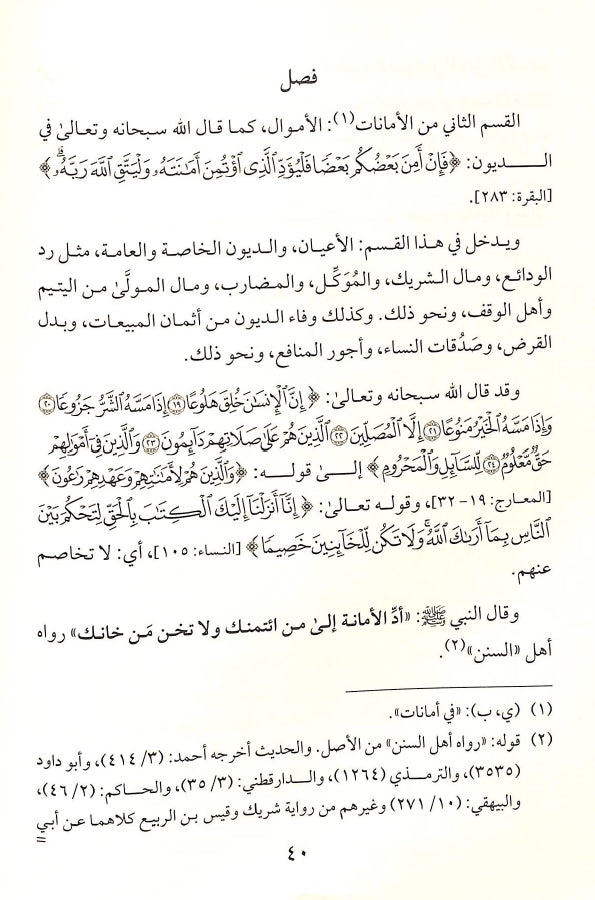 فصل
القسم الثاني من الأمانات(١): الأموال، كما قال الله سبحانه وتعالىٰ في
الـــديون: ﴿فَإِنْ أَمِنَ بَعْضُكُم بَعْضًا فَلْيُؤَدِّ ٱلَّذِى ٱؤْتُمِنَ أَمَٰنَتَهُۥ وَلْيَتَّقِ ٱللَّهَ رَبَّهُۥ﴾
[البقرة: ٢٨٣].
ويدخل في هذا القسم: الأعيان، والديون الخاصة والعامة، مثل رد
الودائع، ومال الشريك، والمُوَكِّل، والمضارب، ومال المولَّىٰ من اليتيم
وأهل الوقف، ونحو ذلك. وكذلك وفاء الديون من أثمان المبيعات، وبدل
القرض، وصَدُقات النساء، وأجور المنافع، ونحو ذلك.
وقد قال الله سبحانه وتعالىٰ: ﴿إِنَّ ٱلْإِنسَٰنَ خُلِقَ هَلُوعًا ١٩ إِذَا مَسَّهُ ٱلشَّرُّ جَزُوعًا ٢٠
وَإِذَا مَسَّهُ ٱلْخَيْرُ مَنُوعًا ٢١ إِلَّا ٱلْمُصَلِّينَ ٢٢ ٱلَّذِينَ هُمْ عَلَىٰ صَلَاتِهِمْ دَآئِمُونَ ٢٣ وَٱلَّذِينَ فِىٓ أَمْوَٰلِهِمْ
حَقٌّ مَّعْلُومٌ ٢٤ لِّلسَّآئِلِ وَٱلْمَحْرُومِ﴾ إلىٰ قوله: ﴿وَٱلَّذِينَ هُمْ لِأَمَٰنَٰتِهِمْ وَعَهْدِهِمْ رَٰعُونَ﴾
[المعارج: ١٩-٣٢]، وقوله تعالىٰ: ﴿إِنَّآ أَنزَلْنَآ إِلَيْكَ ٱلْكِتَٰبَ بِٱلْحَقِّ لِتَحْكُمَ بَيْنَ
ٱلنَّاسِ بِمَآ أَرَىٰكَ ٱللَّهُ وَلَا تَكُن لِّلْخَآئِنِينَ خَصِيمًا﴾ [النساء: ١٠٥]، أي: لا تخاصم
عنهم.
وقال النبي ﷺ: «أدِّ الأمانة إلىٰ من ائتمنك ولا تخن مَن خانك» رواه
أهل «السنن»(٢).
(١) (ي، ب): «في أمانات».
(٢) قوله: «رواه أهل السنن» من الأصل. والحديث أخرجه أحمد: (٣/ ٤١٤)، وأبو داود
(٣٥٣٥)، والترمذي (١٢٦٤)، والدارقطني: (٣/ ٣٥)، والحاكم: (٢/ ٤٦)،
والبيهقي: (١٠/ ٢٧١) وغيرهم من رواية شريك وقيس بن الربيع كلاهما عن أبي
=
٤٠